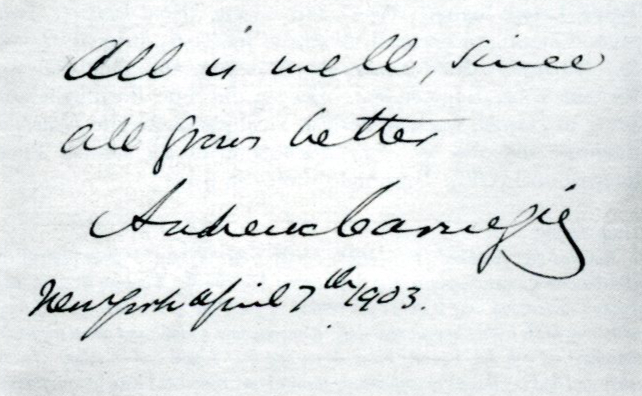 All is well, since
all grows better
Andrew Carnegie
New York April 7th 1903.